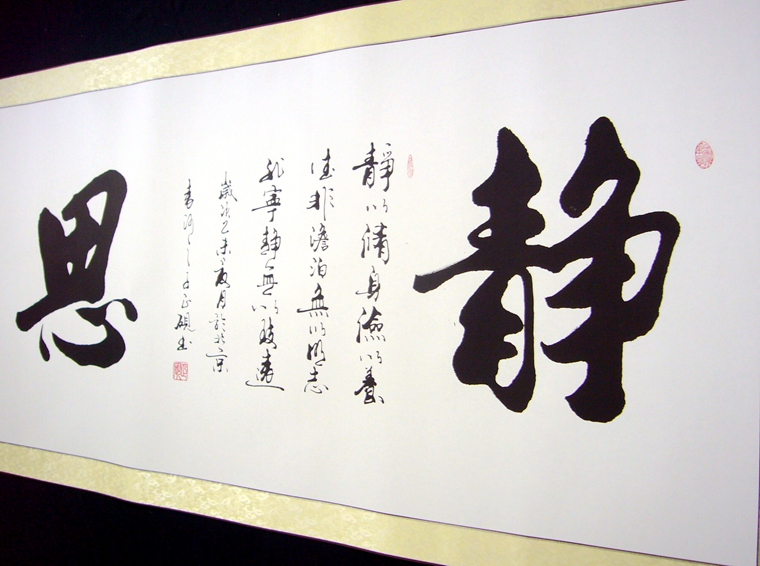 静
靜以脩身儉以養
德非澹泊無以明志
非寧靜無以致遠
歲次乙未夏月於北京
思